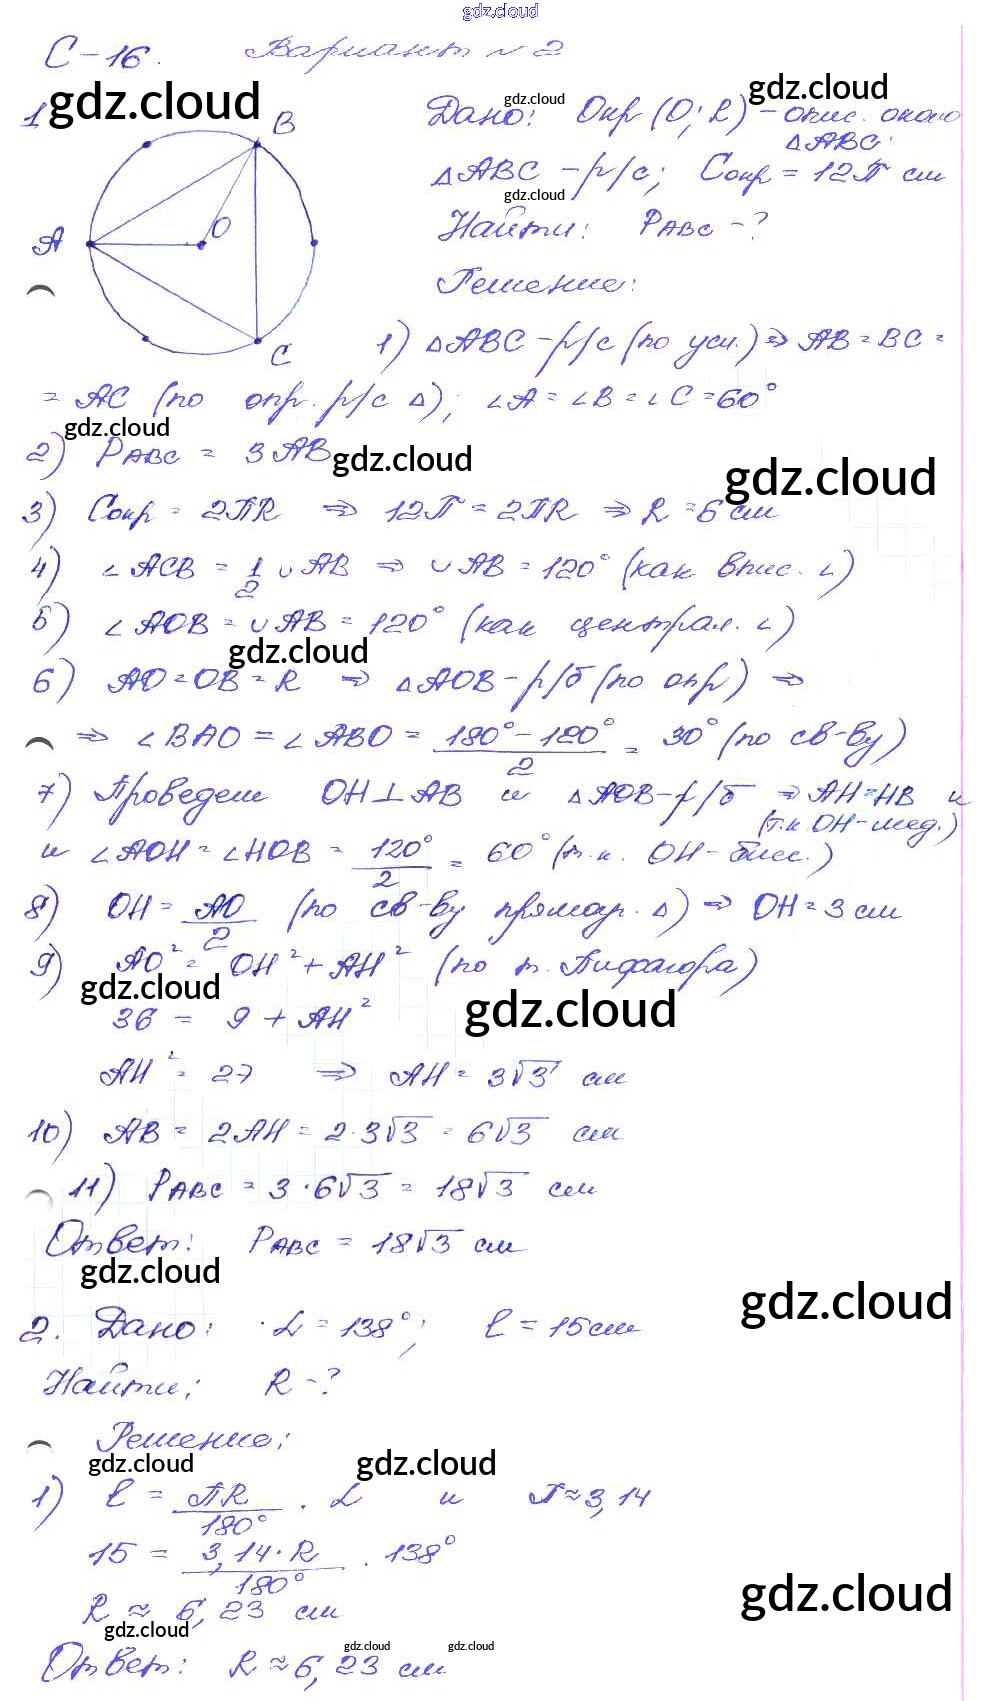 gdz.cloud
С-16. Вариант №2
gdz.cloud
gdz.cloud
gdz.cloud
1. Дано: Окр(O; R) - опис. около
ΔABC.
B
A
O
C
ΔABC - р/с; Cокр = 12π см
gdz.cloud
Найти: PABC - ?
Решение:
1) ΔABC - р/с (по усл.) ⇒ AB = BC =
= AC (по опр. р/с Δ); ∠A = ∠B = ∠C = 60°
gdz.cloud
2) PABC = 3AB
gdz.cloud
gdz.cloud
3) Cокр = 2πR ⇒ 12π = 2πR ⇒ R = 6 см
4) ∠ACB = 1/2 ∪AB ⇒ ∪AB = 120° (как впис. ∠)
5) ∠AOB = ∪AB = 120° (как централ. ∠)
gdz.cloud
6) AO = OB = R ⇒ ΔAOB - р/б (по опр) ⇒
⇒ ∠BAO = ∠ABO = (180° - 120°)/2 = 30° (по св-ву)
7) Проведем OH ⊥ AB и ΔAOB - р/б ⇒ AH = HB и
(т.к. OH - мед.)
и ∠AOH = ∠HOB = 120°/2 = 60° (т.к. OH - бисс.)
8) OH = AO/2 (по св-ву прямоуг. Δ) ⇒ OH = 3 см
9) AO² = OH² + AH² (по т. Пифагора)
gdz.cloud
gdz.cloud
36 = 9 + AH²
AH² = 27 ⇒ AH = 3√3 см
10) AB = 2AH = 2·3√3 = 6√3 см
11) PABC = 3·6√3 = 18√3 см
Ответ: PABC = 18√3 см
gdz.cloud
gdz.cloud
2. Дано: α = 138°; l = 15 см
Найти: R - ?
Решение:
gdz.cloud
gdz.cloud
1) l = πR/180° · α и π ≈ 3,14
15 = 3,14·R/180° · 138°
gdz.cloud
R ≈ 6,23 см
gdz.cloud
gdz.cloud
gdz.cloud
Ответ: R ≈ 6,23 см